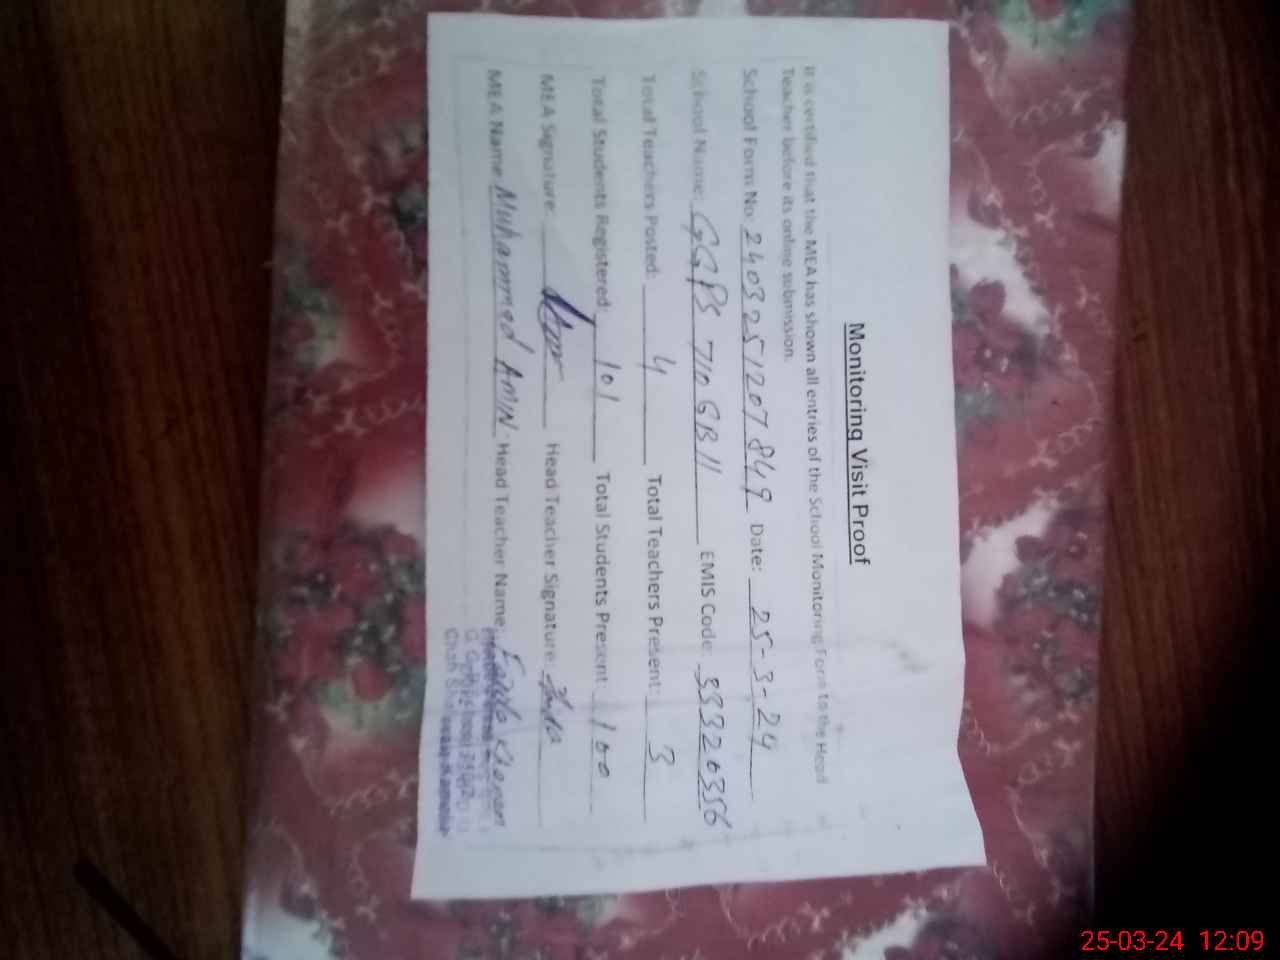 Monitoring Visit Proof
It is certified that the MEA has shown all entries of the School Monitoring Form to the Head
Teacher before its online submission.
School Form No: 2403251207849 Date: 25-3-24
School Name: GGPS 710 GB II EMIS Code: 33320356
Total Teachers Posted: 4 Total Teachers Present: 3
Total Students Registered: 101 Total Students Present: 100
MEA Signature: Head Teacher Signature:
MEA Name: Muhammad AMIN Head Teacher Name:
25-03-24 12:09